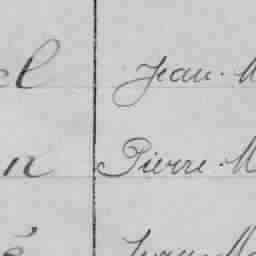 el Jean-M
n Pierre-M
é